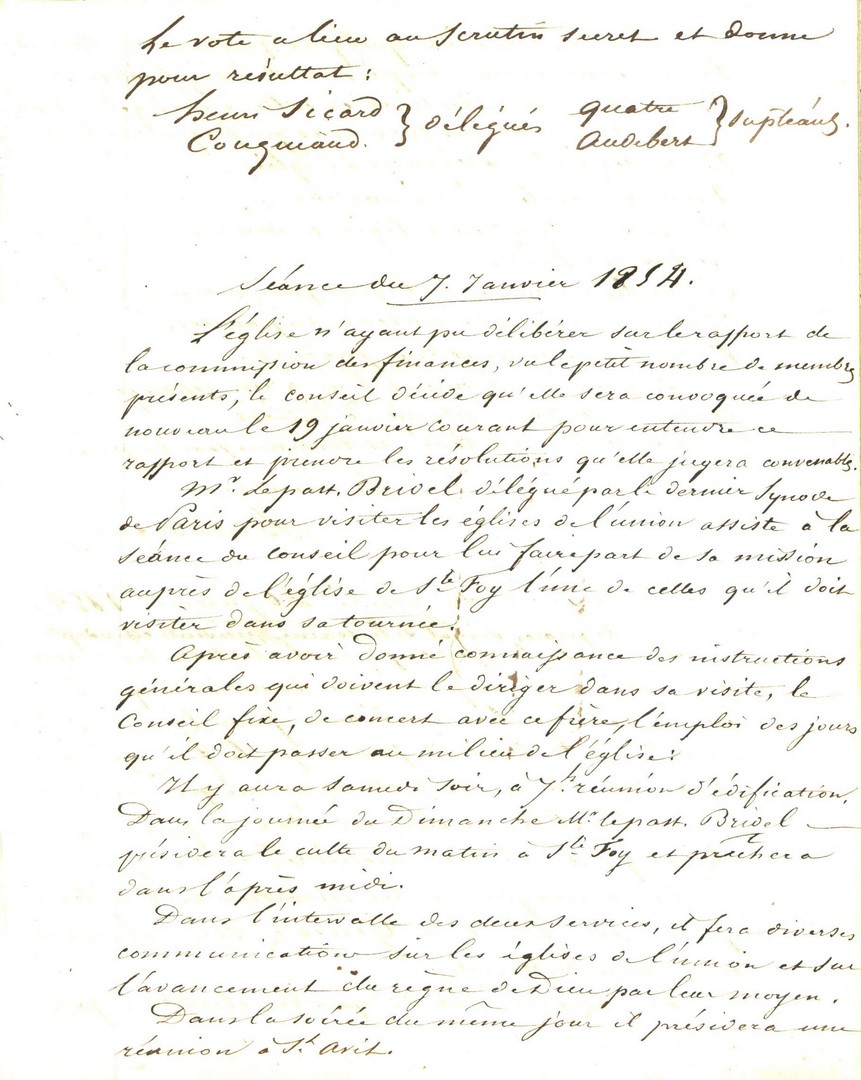 Le vote a lieu au scrutin secret et donne
pour résultat :
henri Sicard } délégués quatre } supléants.
Cougniaud. Audebert
Séance du 7. Janvier 1854.
L'église n'ayant pu délibérer sur le rapport de
la commission des finances, vu le petit nombre de membres
présents, le conseil décide qu'elle sera convoquée de
nouveau le 19 janvier courant pour entendre ce
rapport et prendre les résolutions qu'elle jugera convenables.
Mr. le past. Bridel délégué par le dernier Synode
de Paris pour visiter les églises de l'union assiste à la
séance du conseil pour lui faire part de sa mission
auprès de l'église de Ste Foy l'une de celles qu'il doit
visiter dans sa tournée.
Après avoir donné connaissance des instructions
générales qui doivent le diriger dans sa visite, le
Conseil fixe, de concert avec ce frère, l'emploi des jours
qu'il doit passer au milieu de l'église :
Il y aura samedi soir, à 7h réunion d'édification.
Dans la journée du Dimanche Mr. le past. Bridel
présidera le culte du matin à Ste Foy et prêchera
dans l'après midi.
Dans l'intervalle des deux services, il fera diverses
communications sur les églises de l'union et sur
l'avancement du règne de Dieu par leur moyen.
Dans la soirée du même jour il présidera une
réunion à St. Avit.